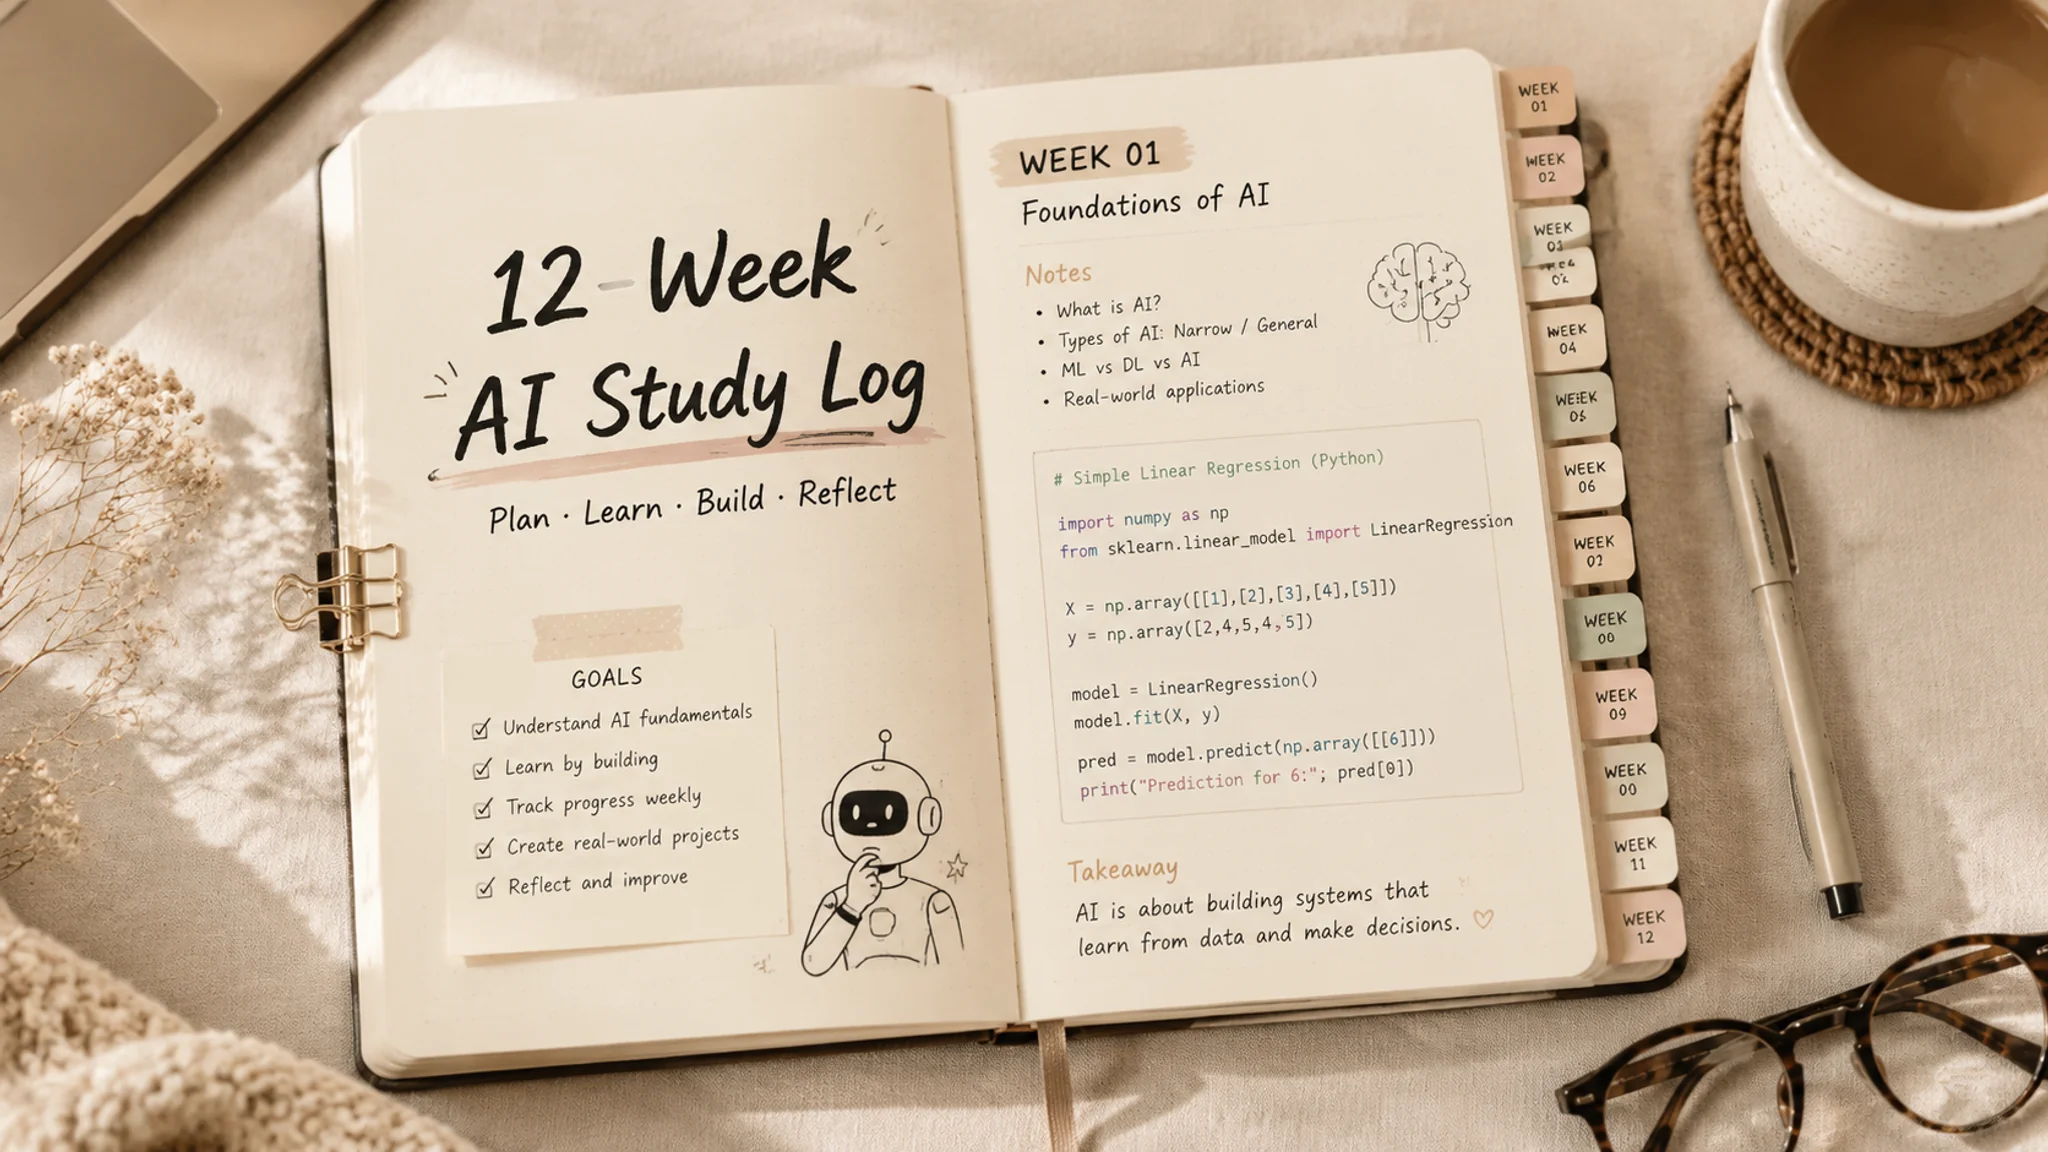 12-Week
AI Study Log
Plan · Learn · Build · Reflect
GOALS
Understand AI fundamentals
Learn by building
Track progress weekly
Create real-world projects
Reflect and improve
WEEK 01
Foundations of AI
Notes
• What is AI?
• Types of AI: Narrow / General
• ML vs DL vs AI
• Real-world applications
# Simple Linear Regression (Python)
import numpy as np
from sklearn.linear_model import LinearRegression
X = np.array([[1],[2],[3],[4],[5]])
y = np.array([2,4,5,4,5])
model = LinearRegression()
model.fit(X, y)
pred = model.predict(np.array([[6]]))
print("Prediction for 6:"; pred[0])
Takeaway
AI is about building systems that
learn from data and make decisions.
WEEK
01
WEEK
02
WEEK
03
WEEK
04
WEEK
WEEK
06
WEEK
WEEK
WEEK
09
WEEK
WEEK
11
WEEK
12